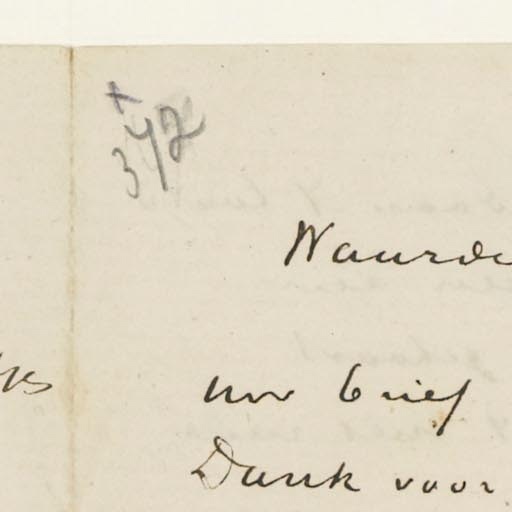 +
342
Waarde
uw brief
Dank voor